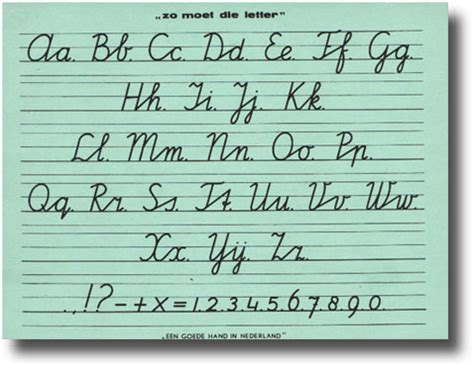 „zo moet die letter"
Aa. Bb. Cc. Dd. Ee. Ff. Gg.
Hh. Ii. Jj. Kk.
Ll. Mm. Nn. Oo. Pp.
Qq. Rr. Ss. Tt. Uu. Vv. Ww.
Xx. Yÿ. Zz.
.,!?-+x=1.2.3.4.5.6.7.8.9.0.
„EEN GOEDE HAND IN NEDERLAND"